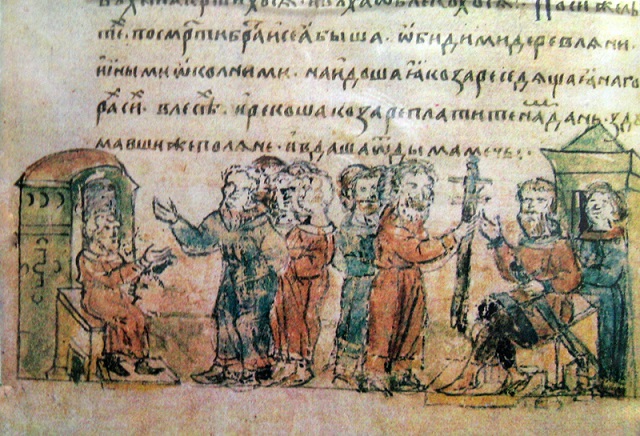 По сиⷯ же лѣ
теⷯ. по смр҃ти братїи сеа быша ѡбидими деревлѧни
иными ѡколними. наидоша ꙗ козаре седѧщаꙗ на го
раⷯ сиⷯ. в лесѣⷯ. и рекоша козаре платите наⷨ дань. здꙋ
мавши же полѧне. и вдаша ѿ дыма мечь: